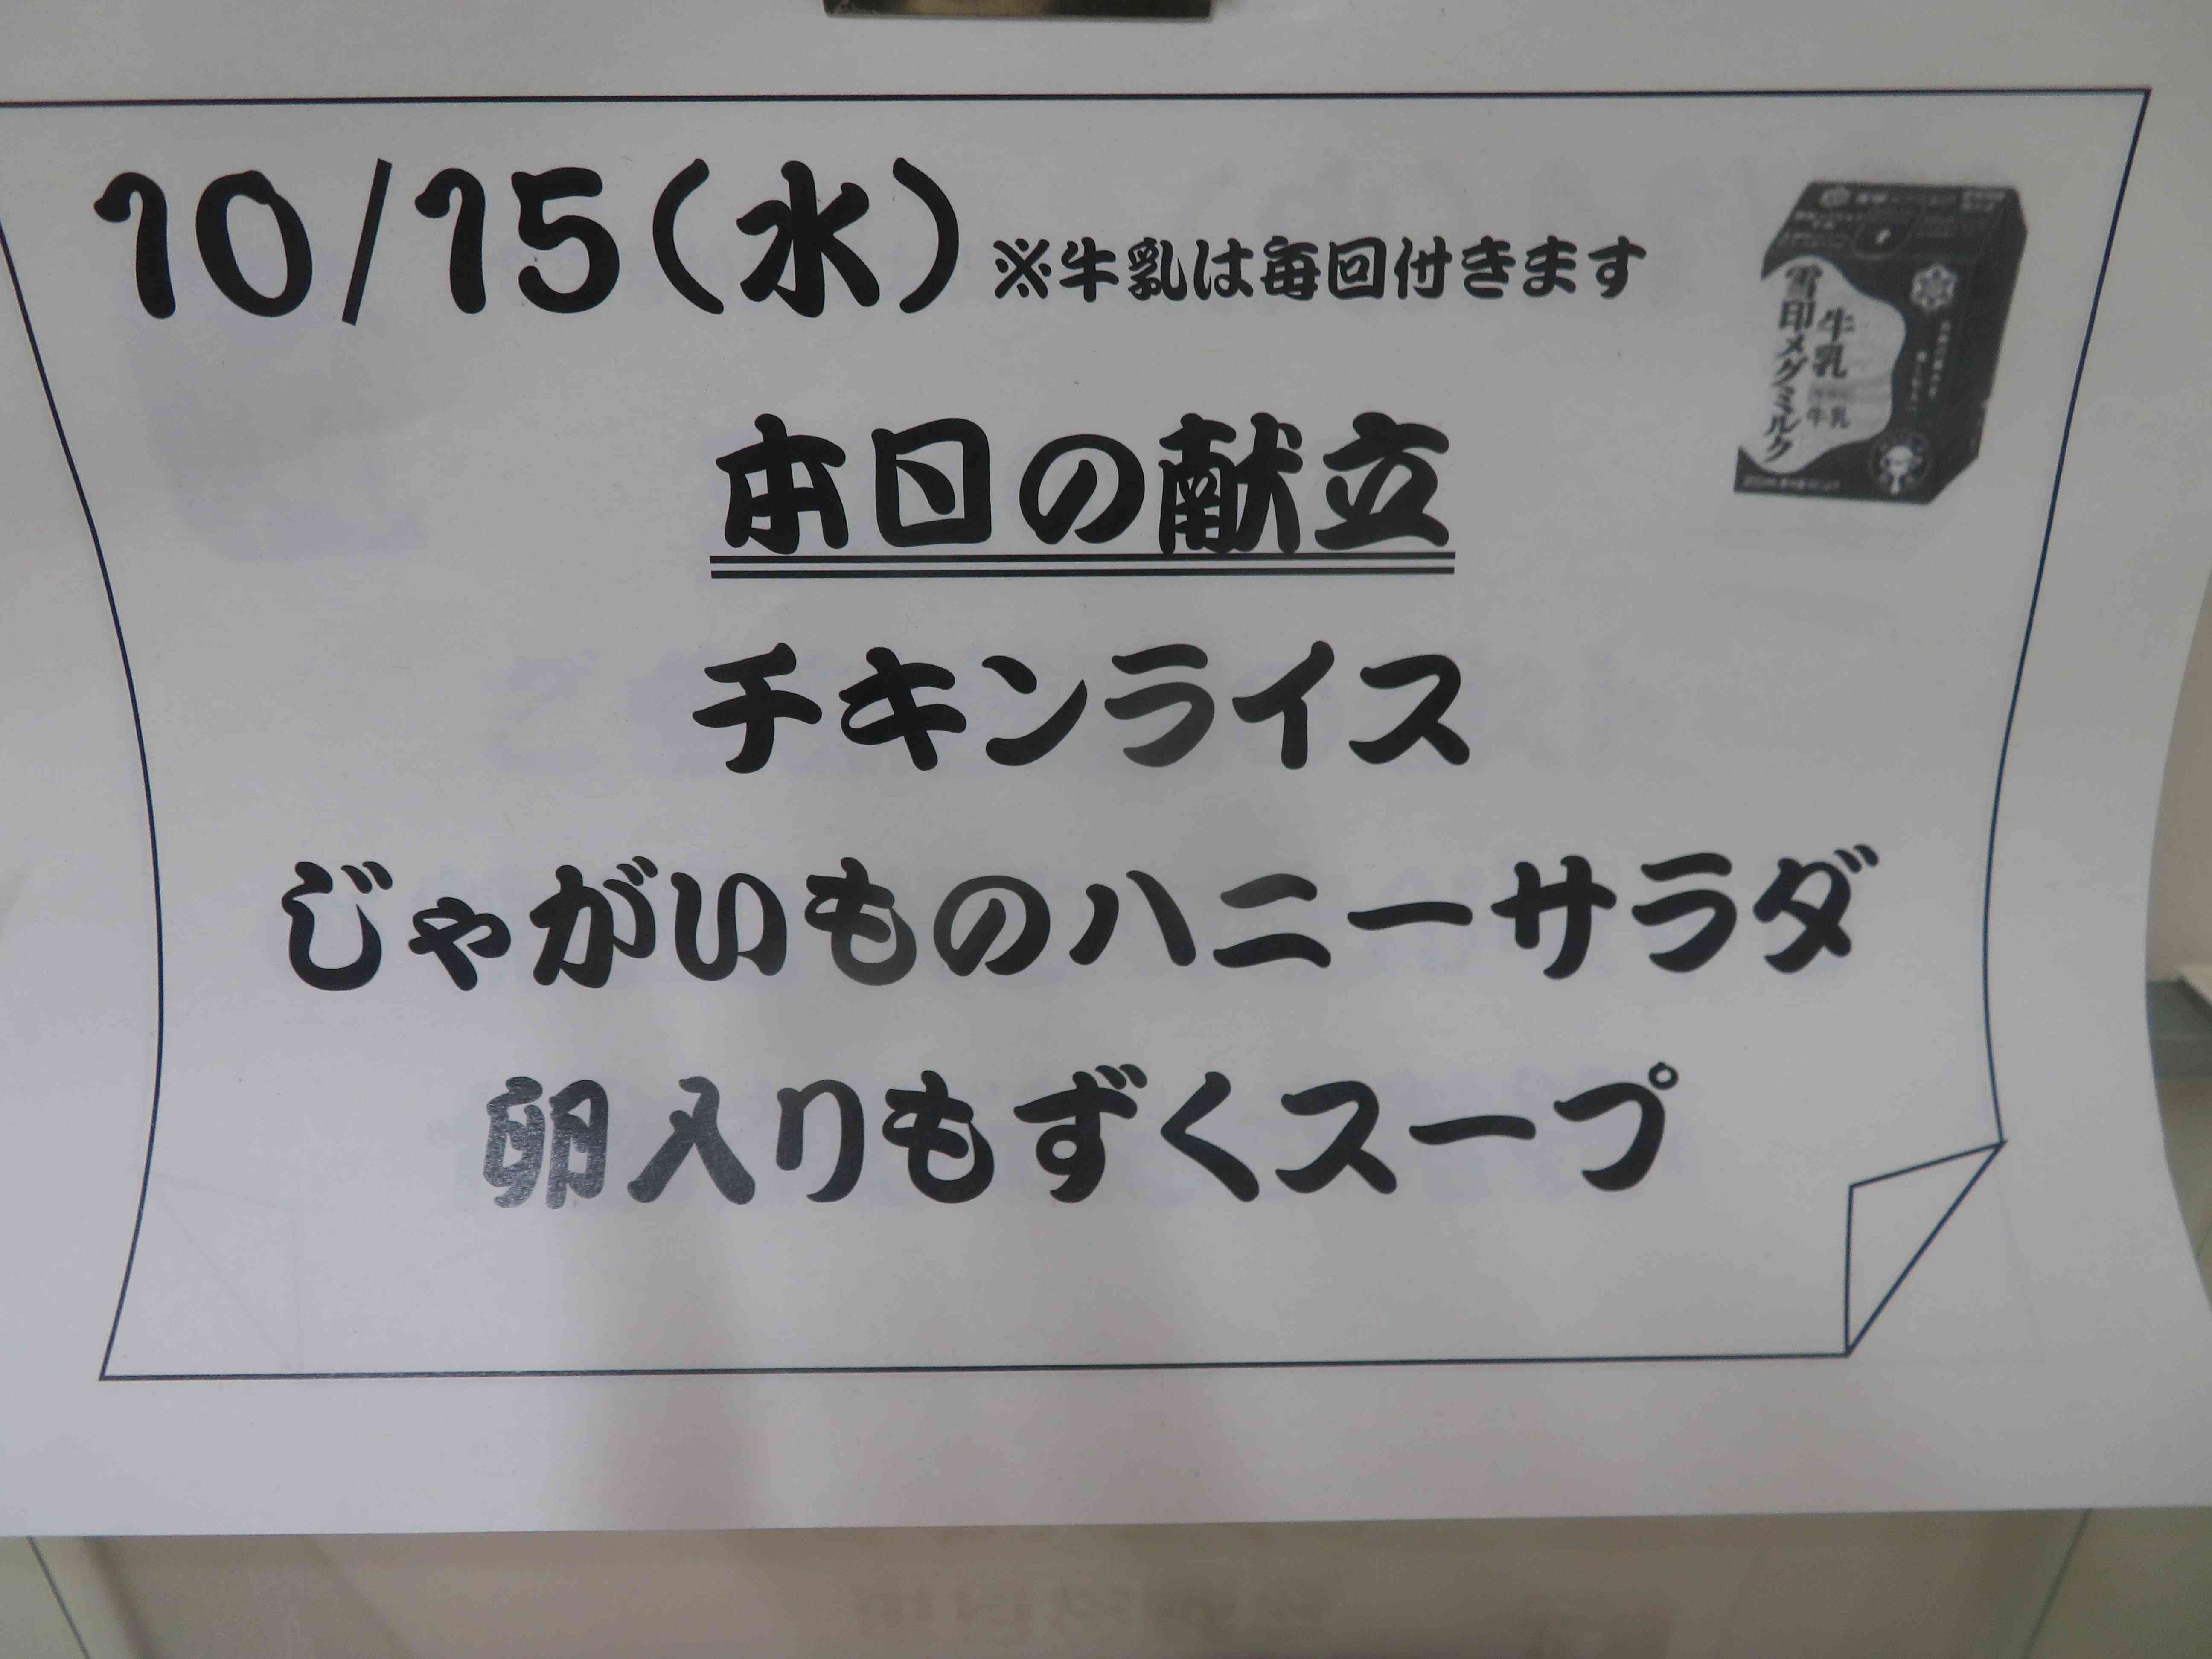 10/15(水) ※牛乳は毎回付きます
雪印メグミルク
牛乳
本日の献立
チキンライス
じゃがいものハニーサラダ
卵入りもずくスープ